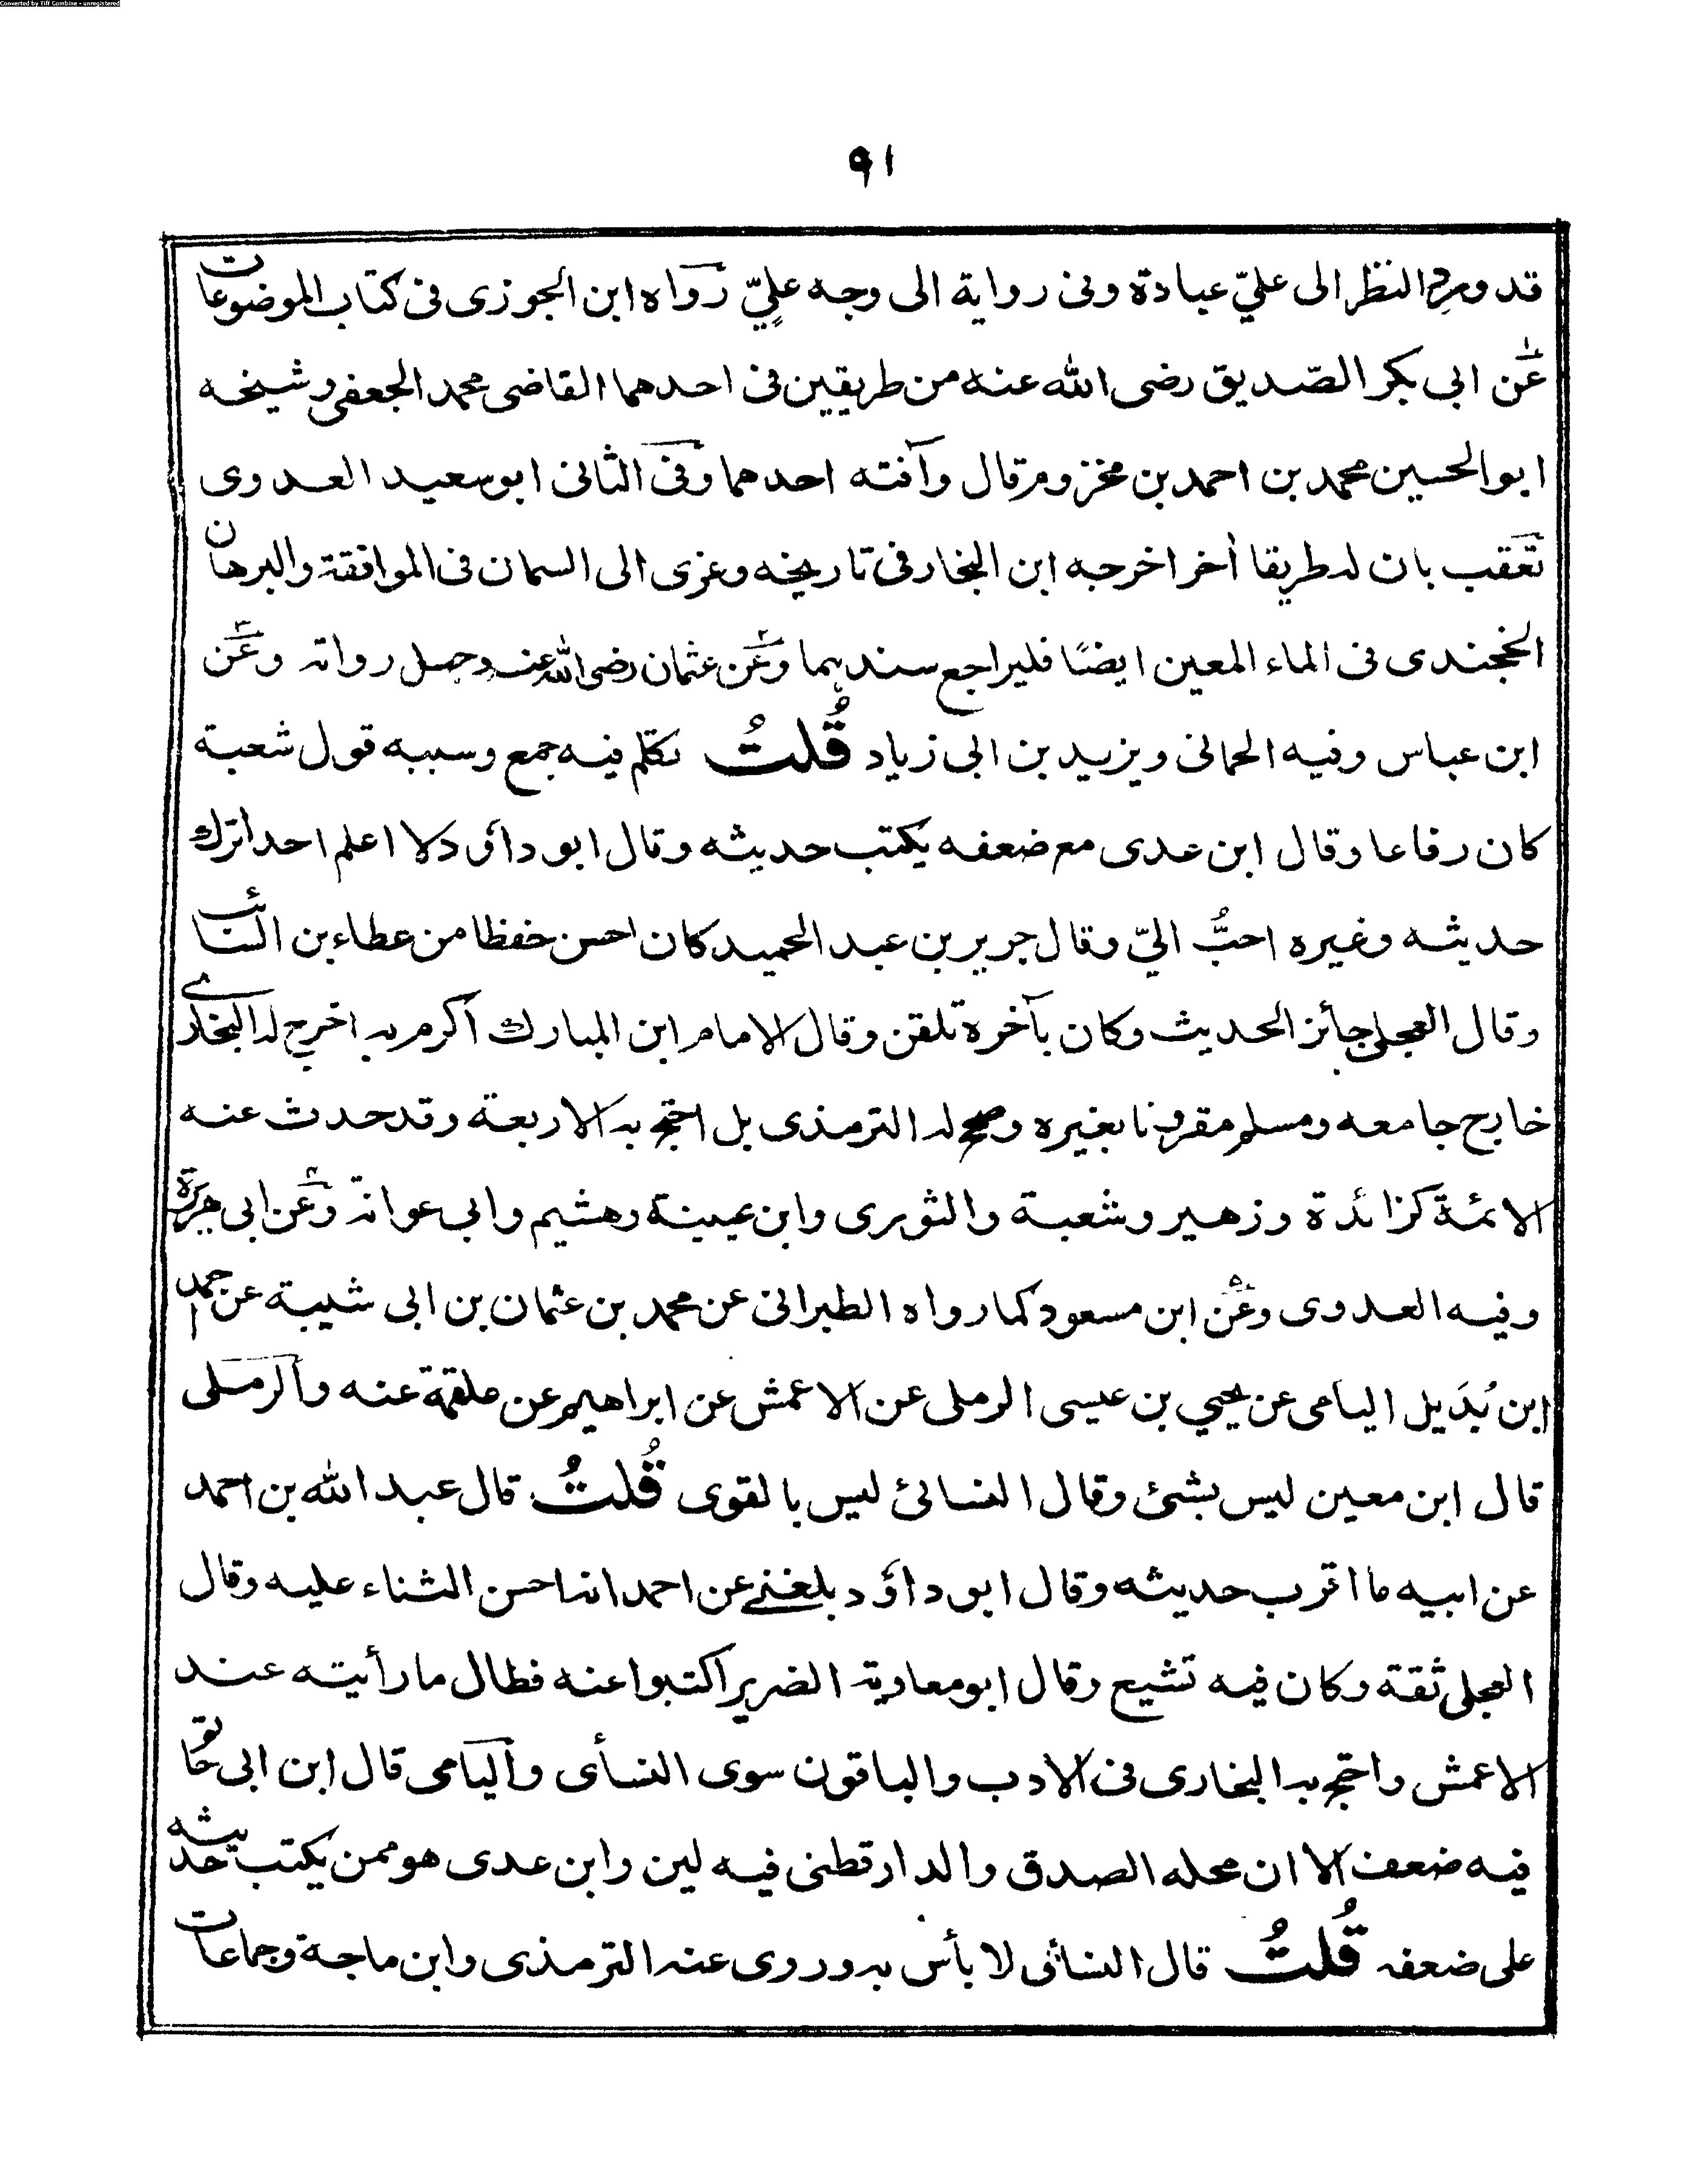 Converted by Tiff Combine - unregistered
٩١
قد ورد النظر الى عليّ عبادة وفى رواية الى وجه عليّ رواه ابن الجوزى فى كتاب الموضوعات
عن ابى بكر الصّديق رضى الله عنه من طريقين فى احدهما القاضى محمد الجعفى وشيخه
ابو الحسين محمد بن احمد بن مخزوم قال وآفته احدهما وفى الثانى ابو سعيد العدوى
تعقب بان له طريقا أخر اخرجه ابن النجار فى تاريخه وعزى الى السمان فى الموافقة والبرهان
الخجندى فى الماء المعين ايضًا فليراجع سندهما وعن عثمان رضى الله عنه وجهل رواته وعن
ابن عباس وفيه الحمانى ويزيد بن ابى زياد قُلتُ تكلم فيه جمع وسببه قول شعبة
كان رفاعا وقال ابن عدى مع ضعفه يكتب حديثه وقال ابو داؤد لا اعلم احدا ترك
حديثه وغيره احبُّ اليّ وقال جرير بن عبد الحميد كان احسن حفظا من عطاء بن السائب
وقال العجلى جائز الحديث وكان بآخرة تلقن وقال الامام ابن المبارك اكرم به اخرج له البخارى
خارج جامعه ومسلم مقرونا بغيره وصحح له الترمذى بل احتج به الاربعة وقد حدث عنه
الائمة كزائدة وزهير وشعبة والثورى وابن عيينة وهشيم وابى عوانة وعن ابى هريرة
وفيه العدوى وعن ابن مسعود كما رواه الطبرانى عن محمد بن عثمان بن ابى شيبة عن احمد
ابن بُدَيل اليامى عن يحيي بن عيسى الرملى عن الاعمش عن ابراهيم عن علقمة عنه والرملى
قال ابن معين ليس بشئ وقال النسائ ليس بالقوى قُلتُ قال عبد الله بن احمد
عن ابيه ما اقرب حديثه وقال ابو داؤد بلغنى عن احمد انه احسن الثناء عليه وقال
العجلى ثقة وكان فيه تشيع وقال ابو معاوية الضرير اكتبوا عنه فطال ما رأيته عند
الاعمش واحتج به البخارى فى الادب والباقون سوى النسأى واليامى قال ابن ابى حاتم
فيه ضعف الا ان محله الصدق والدارقطنى فيه لين وابن عدى هو ممن يكتب حديثه
على ضعفه قُلتُ قال النسائى لا بأس به وروى عنه الترمذى وابن ماجة وجماعات